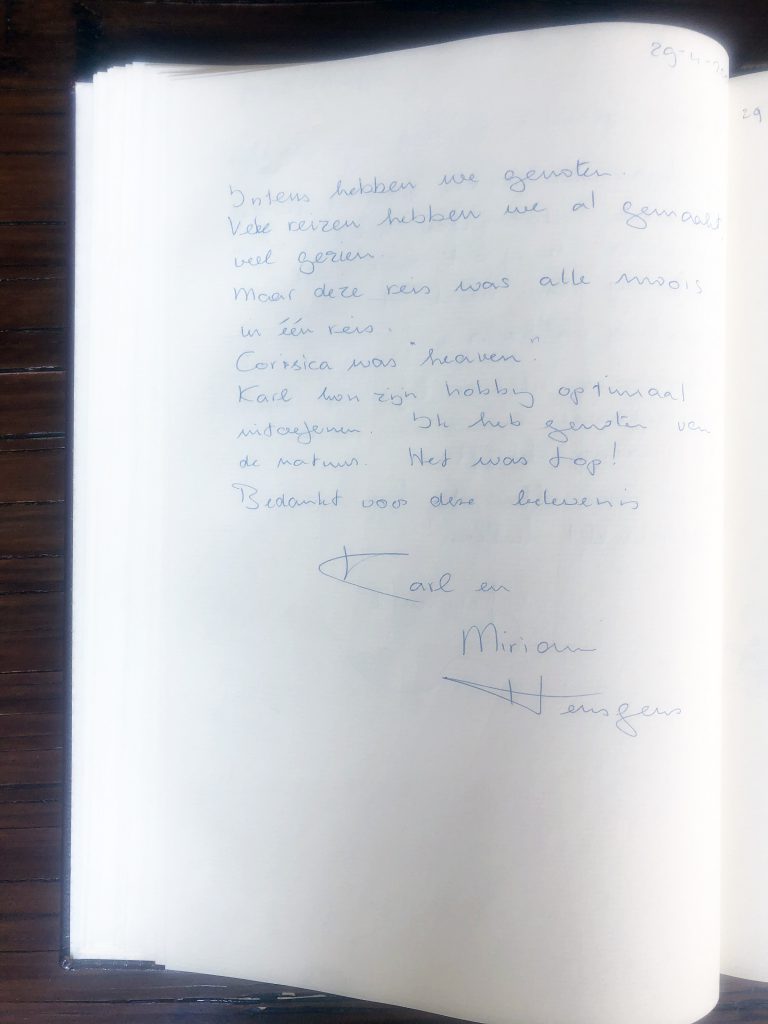 29-4-20
29
Intens hebben we genoten.
Vele reizen hebben we al gemaakt
veel gezien.
Maar deze reis was alle moois
in één reis.
Corssica was "heaven".
Karl kon zijn hobby optimaal
uitoefenen. Ik heb genoten van
de natuur. Het was top!
Bedankt voor deze belevenis
Karl en
Miriam
Hensgens